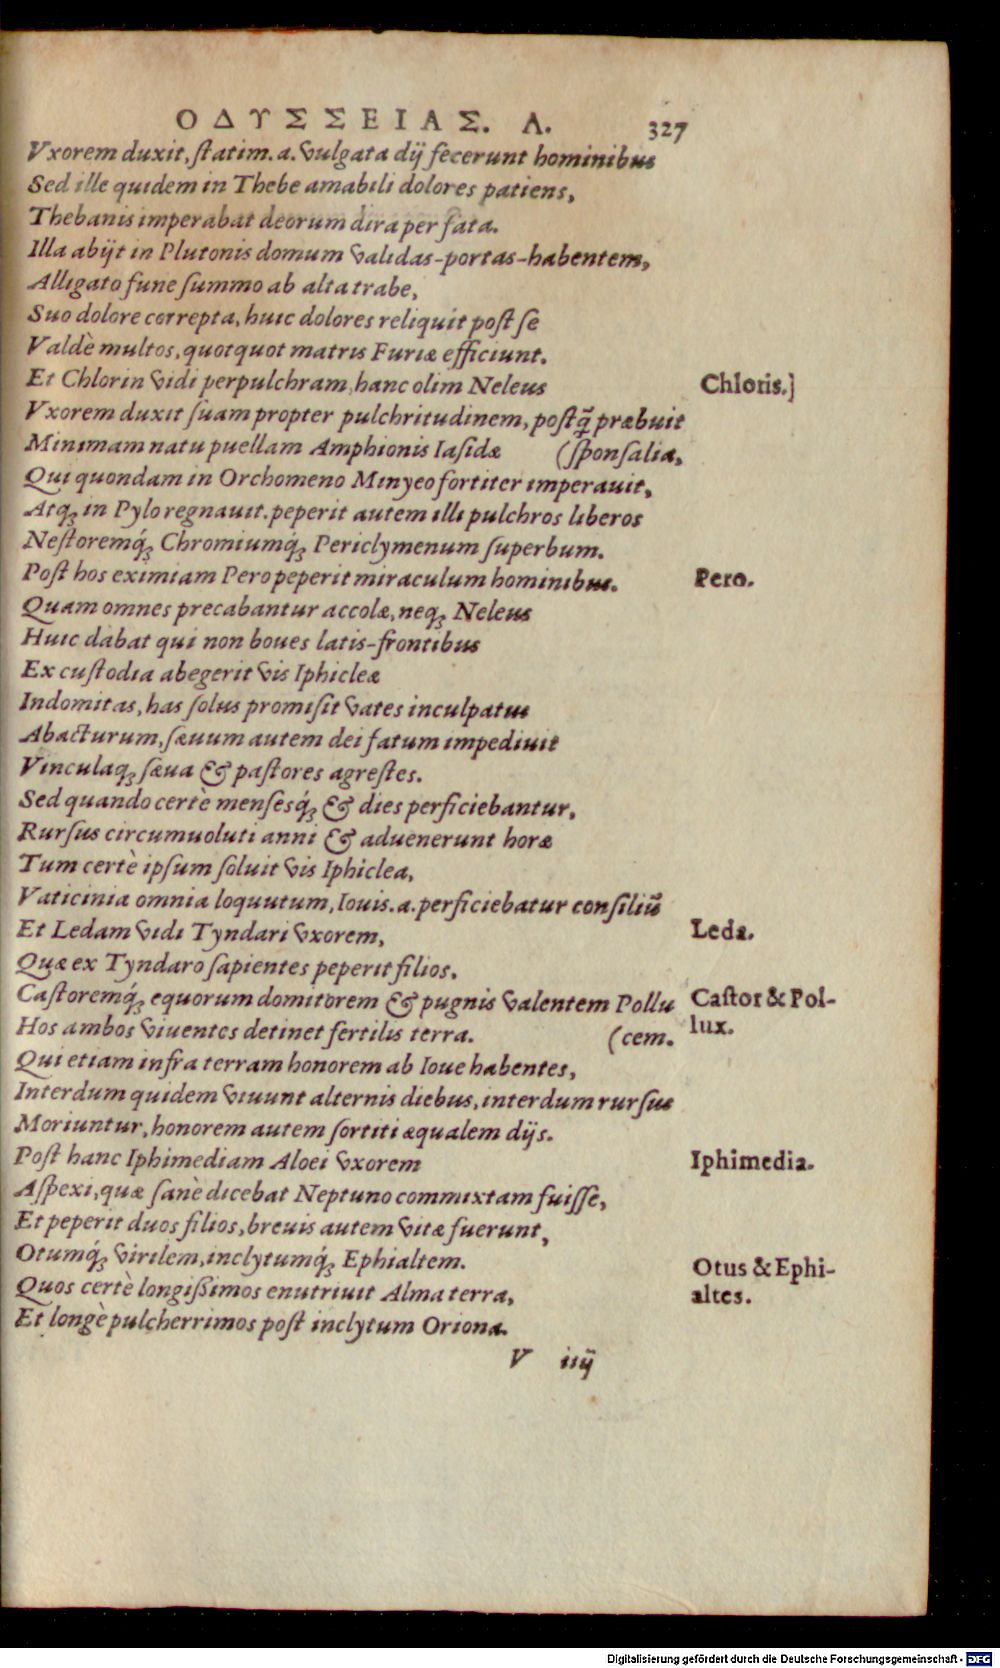 ΟΔΥΣΣΕΙΑΣ. Λ. 327
Vxorem duxit, ſtatim. a. vulgata dij fecerunt hominibus
Sed ille quidem in Thebe amabili dolores patiens,
Thebanis imperabat deorum dira per fata.
Illa abijt in Plutonis domum validas-portas-habentem,
Alligato fune ſummo ab alta trabe,
Suo dolore correpta, huic dolores reliquit poſt ſe
Valdè multos, quotquot matris Furiæ efficiunt.
Et Chlorin vidi perpulchram, hanc olim Neleus Chloris.]
Vxorem duxit ſuam propter pulchritudinem, poſtq̃ præbuit
Minimam natu puellam Amphionis Iaſidæ (ſponſalia,
Qui quondam in Orchomeno Minyeo fortiter imperauit,
Atq; in Pylo regnauit. peperit autem illi pulchros liberos
Neſtoremq́; Chromiumq́; Periclymenum ſuperbum.
Poſt hos eximiam Pero peperit miraculum hominibus. Pero.
Quam omnes precabantur accolæ, neq; Neleus
Huic dabat qui non boues latis-frontibus
Ex cuſtodia abegerit vis Iphicleæ
Indomitas, has ſolus promiſit vates inculpatus
Abacturum, ſæuum autem dei fatum impediuit
Vinculaq; ſæua & paſtores agreſtes.
Sed quando certè menſesq́; & dies perficiebantur,
Rurſus circumuoluti anni & aduenerunt horæ
Tum certè ipſum ſoluit vis Iphiclea,
Vaticinia omnia loquutum, Iouis. a. perficiebatur conſiliũ
Et Ledam vidi Tyndari vxorem, Leda.
Quæ ex Tyndaro ſapientes peperit filios,
Caſtoremq́; equorum domitorem & pugnis valentem Pollu Caſtor & Pol-
Hos ambos viuentes detinet fertilis terra. (cem. lux.
Qui etiam infra terram honorem ab Ioue habentes,
Interdum quidem viuunt alternis diebus, interdum rurſus
Moriuntur, honorem autem ſortiti æqualem dijs.
Poſt hanc Iphimediam Aloei vxorem Iphimedia.
Aſpexi, quæ ſanè dicebat Neptuno commixtam fuiſſe,
Et peperit duos filios, breuis autem vitæ fuerunt,
Otumq́; virilem, inclytumq́; Ephialtem. Otus & Ephi-
Quos certè longißimos enutriuit Alma terra, altes.
Et longè pulcherrimos poſt inclytum Oriona.
V iiij
Digitalisierung gefördert durch die Deutsche Forschungsgemeinschaft - DFG